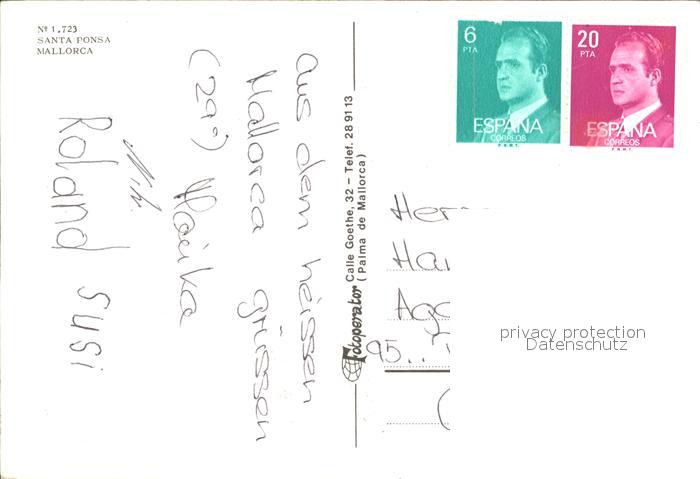 Nº 1.723
SANTA PONSA
MALLORCA
aus dem heissen
Mallorca grüssen
(29°)
Roland Susi
Fotoperator Calle Goethe, 32 – Telef. 28 91 13
(Palma de Mallorca)
6
PTA
ESPAÑA
CORREOS
F.N.M.T.
20
PTA
ESPAÑA
CORREOS
F.N.M.T.
Her
Ha
Ag
95..
privacy protection
Datenschutz